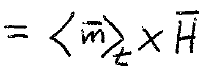 = ⟨m̅⟩ₜ × H̅